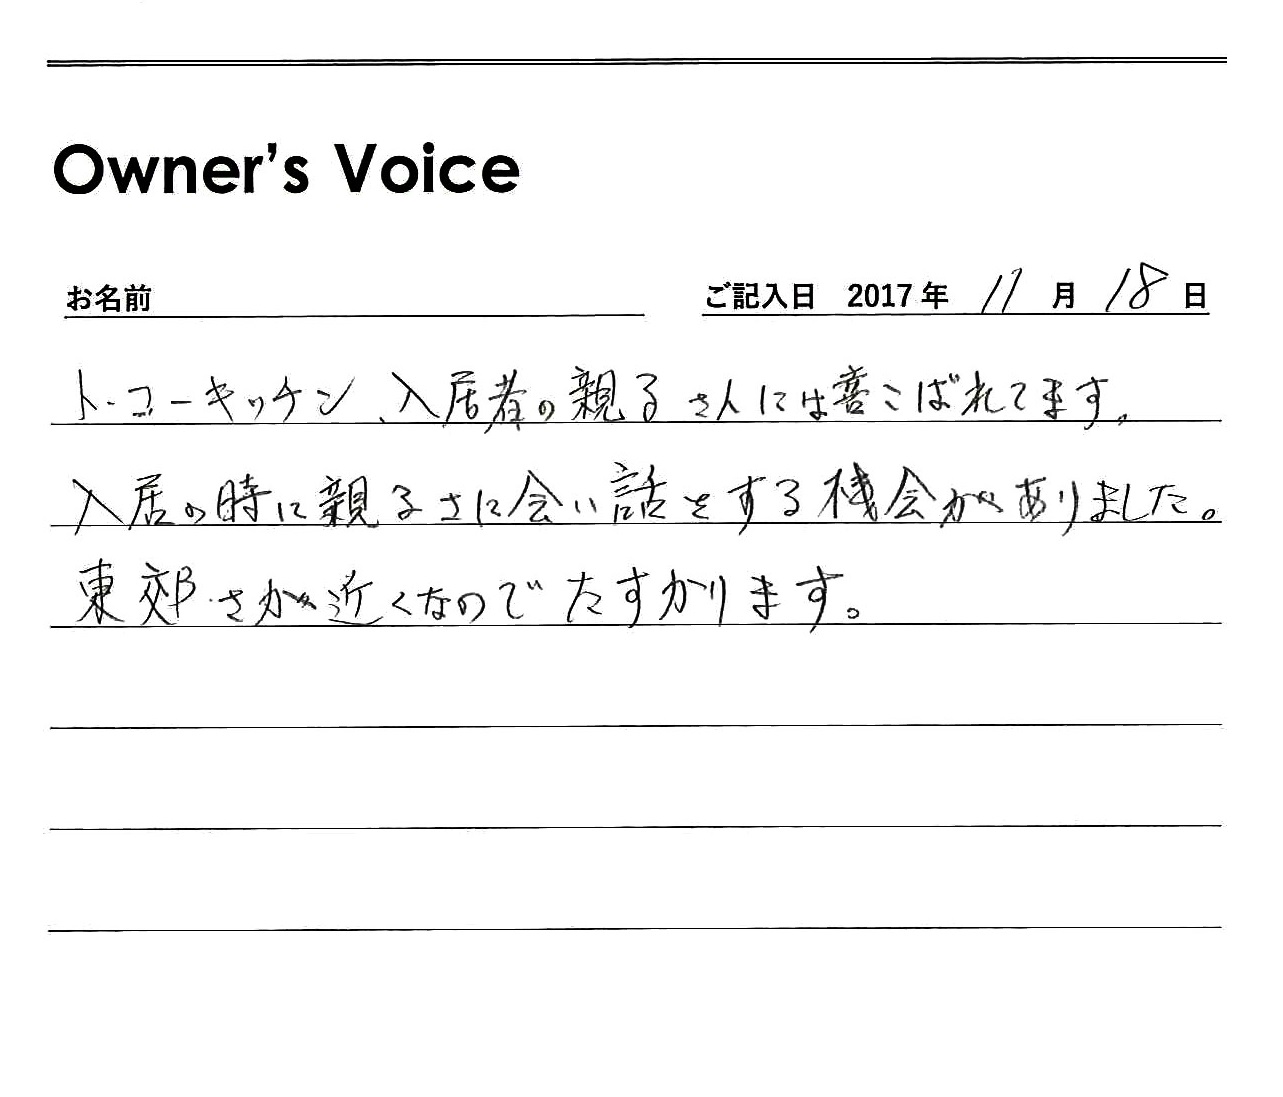 Owner's Voice
お名前 ご記入日 2017年 11月 18日
トーコーキッチン、入居者の親ごさんには喜こばれてます。
入居の時に親ごさに会い話をする機会がありました。
東郊さが近くなのでたすかります。